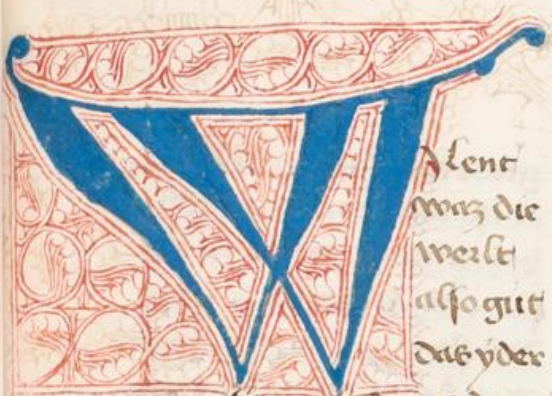 W
Alent
waz die
werlt
also gut
das yder